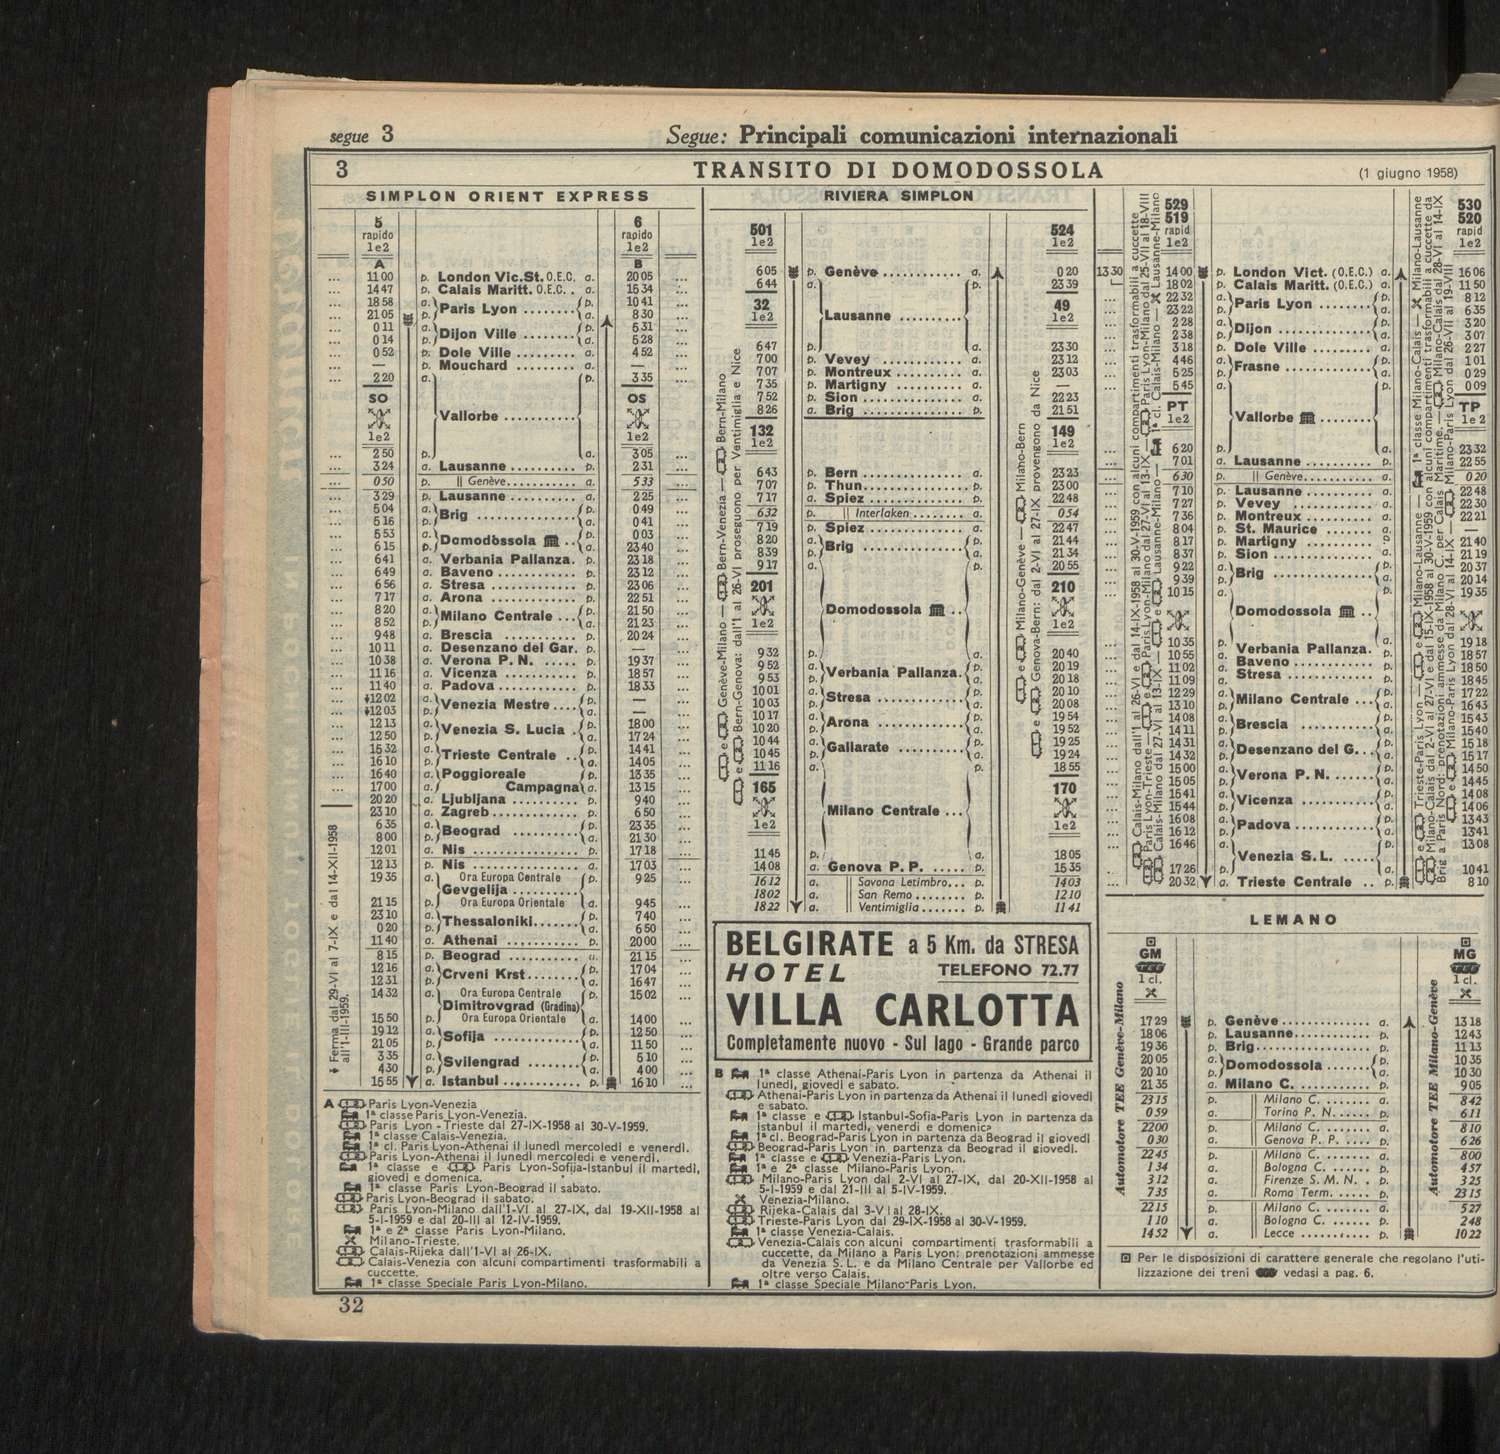 segue 3
Segue: Principali comunicazioni internazionali
3 TRANSITO DI DOMODOSSOLA (1 giugno 1958)
SIMPLON ORIENT EXPRESS
5 6
rapido rapido
1e2 1e2
A B
... 11 00 p. London Vic.St. O.E.C. a. 20 05 ...
... 14 47 p. Calais Maritt. O.E.C. . a. 15 34 ...
... 18 58 a. Paris Lyon ........ p. 10 41 ...
... 21 05 p. a. 8 30 ...
... 0 11 a. Dijon Ville ....... p. 5 31 ...
... 0 14 p. a. 5 28 ...
... 0 52 p. Dole Ville ......... a. 4 52 ...
... — p. Mouchard ......... a. — ...
... 2 20 a. p. 3 35 ...
SO OS
Vallorbe ..........
1e2 1e2
... 2 50 p. a. 3 05 ...
... 3 24 a. Lausanne .......... p. 2 31 ...
... 0 50 p. || Genève.......... a. 5 33 ...
... 3 29 p. Lausanne .......... a. 2 25 ...
... 5 04 a. Brig .............. p. 0 49 ...
... 5 16 p. a. 0 41 ...
... 5 53 a. Domodossola .. p. 0 03 ...
... 6 15 p. a. 23 40 ...
... 6 41 a. Verbania Pallanza. p. 23 18 ...
... 6 49 a. Baveno ........... p. 23 12 ...
... 6 56 a. Stresa ............ p. 23 06 ...
... 7 17 a. Arona ............ p. 22 51 ...
... 8 20 a. Milano Centrale ... p. 21 50 ...
... 8 52 p. a. 21 23 ...
... 9 48 a. Brescia .......... p. 20 24 ...
... 10 11 a. Desenzano del Gar. p. — ...
... 10 38 a. Verona P. N. ..... p. 19 37 ...
... 11 16 a. Vicenza .......... p. 18 57 ...
... 11 40 a. Padova ........... p. 18 33 ...
... 12 02 a. Venezia Mestre ... p. — ...
... 12 03 p. a. — ...
... 12 13 a. Venezia S. Lucia . p. 18 00 ...
... 12 50 p. a. 17 24 ...
... 15 32 a. Trieste Centrale .. p. 14 41 ...
... 16 10 p. a. 14 05 ...
... 16 40 a. Poggioreale p. 13 35 ...
... 17 00 p. Campagna a. 13 15 ...
20 20 a. Ljubljana ......... p. 9 40 ...
23 10 a. Zagreb............ p. 6 50 ...
6 35 a. Beograd .......... p. 23 35 ...
8 00 p. a. 21 30 ...
12 01 a. Nis ............... p. 17 18 ...
12 13 p. Nis ............... a. 17 03 ...
19 35 a. Ora Europa Centrale p. 9 25 ...
Gevgelija .........
21 15 p. Ora Europa Orientale a. 9 45 ...
23 10 a. Thessaloniki...... p. 7 40 ...
0 20 p. a. 6 50 ...
11 40 a. Athenai ........... p. 20 00 ...
8 15 p. Beograd .......... a. 21 15 ...
12 16 a. Crveni Krst....... p. 17 04 ...
12 31 p. a. 16 47 ...
14 32 a. Ora Europa Centrale p. 15 02 ...
Dimitrovgrad (Gradina)
15 50 p. Ora Europa Orientale a. 14 00 ...
19 12 a. Sofija ............ p. 12 50 ...
21 05 p. a. 11 50 ...
3 35 a. Svilengrad ....... p. 5 10 ...
4 30 p. a. 4 00 ...
15 55 a. Istanbul ........... p. 16 10 ...
Ferma dal 29-VI al 7-IX e dal 14-XII-1958
all'1-III-1959.
A Paris Lyon-Venezia
1ª classe Paris Lyon-Venezia.
Paris Lyon - Trieste dal 27-IX-1958 al 30-V-1959.
1ª classe Calais-Venezia.
1ª cl. Paris Lyon-Athenai il lunedì mercoledì e venerdì.
Paris Lyon-Athenai il lunedì mercoledì e venerdì.
1ª classe e Paris Lyon-Sofija-Istanbul il martedì,
giovedì e domenica.
1ª classe Paris Lyon-Beograd il sabato.
Paris Lyon-Beograd il sabato.
Paris Lyon-Milano dall'1-VI al 27-IX, dal 19-XII-1958 al
5-I-1959 e dal 20-III al 12-IV-1959.
1ª e 2ª classe Paris Lyon-Milano.
Milano-Trieste.
Calais-Rijeka dall'1-VI al 26-IX.
Calais-Venezia con alcuni compartimenti trasformabili a
cuccette.
1ª classe Speciale Paris Lyon-Milano.
RIVIERA SIMPLON
501 524
1e2 1e2
6 05 p. Genève ............ a. 0 20
6 44 a. p. 23 39
32 49
1e2 Lausanne .......... 1e2
6 47 p. a. 23 30
7 00 p. Vevey ............ a. 23 12
7 07 p. Montreux ......... a. 23 03
7 35 p. Martigny ......... a. —
7 52 p. Sion .............. a. 22 23
8 26 a. Brig .............. p. 21 51
132 149
1e2 1e2
6 43 p. Bern .............. a. 23 23
7 07 p. Thun.............. a. 23 00
7 17 a. Spiez ............. p. 22 48
6 32 p. || Interlaken ........ a. 0 54
7 19 p. Spiez ............. a. 22 47
8 20 a. Brig .............. p. 21 44
8 39 p. a. 21 34
9 17 a. p. 20 55
201 210
Domodossola ..
1e2 1e2
9 32 p. a. 20 40
9 52 a. Verbania Pallanza. p. 20 19
9 53 p. a. 20 18
10 01 a. Stresa ............ p. 20 10
10 03 p. a. 20 08
10 17 a. Arona ............ p. 19 54
10 20 p. a. 19 52
10 44 a. Gallarate ......... p. 19 25
10 45 p. a. 19 24
11 16 a. p. 18 55
165 170
Milano Centrale ...
1e2 1e2
11 45 p. a. 18 05
14 08 a. Genova P. P. ..... p. 15 35
16 12 a. || Savona Letimbro... p. 14 03
18 02 a. || San Remo ........ p. 12 10
18 22 a. || Ventimiglia ....... p. 11 41
Genève-Milano — Bern-Venezia — Bern-Milano
e Bern-Genova: dall'1 al 26-VI proseguono per Ventimiglia e Nice
e Milano-Genève — Milano-Bern
e Genova-Bern: dal 2-VI al 27-IX provengono da Nice
BELGIRATE a 5 Km. da STRESA
HOTEL TELEFONO 72.77
VILLA CARLOTTA
Completamente nuovo - Sul lago - Grande parco
B 1ª classe Athenai-Paris Lyon in partenza da Athenai il
lunedì, giovedì e sabato.
Athenai-Paris Lyon in partenza da Athenai il lunedì giovedì
e sabato.
1ª classe e Istanbul-Sofia-Paris Lyon in partenza da
Istanbul il martedì, venerdì e domenica
1ª cl. Beograd-Paris Lyon in partenza da Beograd il giovedì
Beograd-Paris Lyon in partenza da Beograd il giovedì.
1ª classe e Venezia-Paris Lyon.
1ª e 2ª classe Milano-Paris Lyon.
Milano-Paris Lyon dal 2-VI al 27-IX, dal 20-XII-1958 al
5-I-1959 e dal 21-III al 5-IV-1959.
Venezia-Milano.
Rijeka-Calais dal 3-VI al 28-IX.
Trieste-Paris Lyon dal 29-IX-1958 al 30-V-1959.
1ª classe Venezia-Calais.
Venezia-Calais con alcuni compartimenti trasformabili a
cuccette, da Milano a Paris Lyon: prenotazioni ammesse
da Venezia S. L. e da Milano Centrale per Vallorbe ed
oltre verso Calais.
1ª classe Speciale Milano-Paris Lyon.
529 530
519 520
rapid rapid
1e2 1e2
13 30 14 00 p. London Vict. (O.E.C.) a. 16 06
18 02 p. Calais Maritt. (O.E.C.) a. 11 50
... 22 32 a. Paris Lyon ........ p. 8 12
... 23 22 p. a. 6 35
... 2 28 a. Dijon ............. p. 3 20
... 2 38 p. a. 3 07
... 3 18 p. Dole Ville ......... a. 2 27
... 4 46 a. Frasne ............ p. 1 01
... 5 25 p. a. 0 29
... 5 45 a. p. 0 09
PT TP
1e2 Vallorbe ........ 1e2
... 6 20 p. a. 23 32
... 7 01 a. Lausanne .......... p. 22 55
... 6 30 p. || Genève........... a. 0 20
... 7 10 p. Lausanne .......... a. 22 48
... 7 27 p. Vevey ............ a. 22 30
... 7 36 p. Montreux ......... a. 22 21
... 8 04 p. St. Maurice ...... a. —
... 8 17 p. Martigny ......... 21 40
... 8 37 p. Sion .............. a. 21 19
... 9 22 a. Brig .............. p. 20 37
... 9 39 p. a. 20 14
... 10 15 a. p. 19 35
Domodossola ..
... 10 35 p. a. 19 18
... 10 55 a. Verbania Pallanza. p. 18 57
... 11 02 a. Baveno ........... p. 18 50
... 11 09 a. Stresa ............ p. 18 45
... 12 29 a. Milano Centrale ... p. 17 22
... 13 10 p. a. 16 43
... 14 08 a. Brescia ........... p. 15 43
... 14 11 p. a. 15 40
... 14 31 a. Desenzano del G. .. p. 15 18
... 14 32 p. a. 15 17
... 15 00 a. Verona P. N. ...... p. 14 50
... 15 05 p. a. 14 45
... 15 41 a. Vicenza ........... p. 14 08
... 15 44 p. a. 14 06
... 16 08 a. Padova ........... p. 13 43
... 16 12 p. a. 13 41
... 16 46 a. p. 13 08
Venezia S. L. .....
17 26 p. a. 10 41
... 20 32 a. Trieste Centrale .. p. 8 10
LEMANO
GM MG
TEE TEE
1 cl. 1 cl.
17 29 p. Genève............. a. 13 18
18 06 p. Lausanne........... a. 12 43
19 36 p. Brig................ a. 11 13
20 05 a. Domodossola ...... p. 10 35
20 10 p. a. 10 30
21 35 a. Milano C. .......... p. 9 05
23 15 p. || Milano C. ....... a. 8 42
0 59 a. || Torino P. N. ..... p. 6 11
22 00 p. || Milano C. ...... a. 8 10
0 30 a. || Genova P. P. .... p. 6 26
22 45 p. || Milano C. ....... a. 8 00
1 34 a. || Bologna C. ...... p. 4 57
3 12 a. || Firenze S. M. N. . p. 3 25
7 35 a. || Roma Term. ..... p. 23 15
22 15 p. || Milano C. ....... a. 5 27
1 10 a. || Bologna C. ...... p. 2 48
14 52 a. || Lecce .......... p. 10 22
Automotore TEE Genève-Milano
Automotore TEE Milano-Genève
Per le disposizioni di carattere generale che regolano l'uti-
lizzazione dei treni TEE vedasi a pag. 6.
32